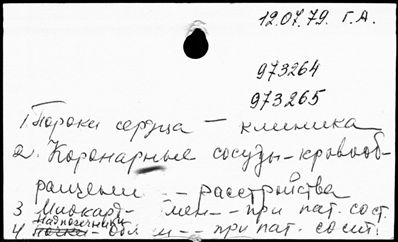 12.07.79. Г.А.
973264
973265
1 Пороки сердца — клиника
2. Коронарные сосуды-кровооб-
ращении -- расстройства
3 Миокард- мен-- при пат. сост.
Надпочечники
4 почки- обм -- при пат. сост.